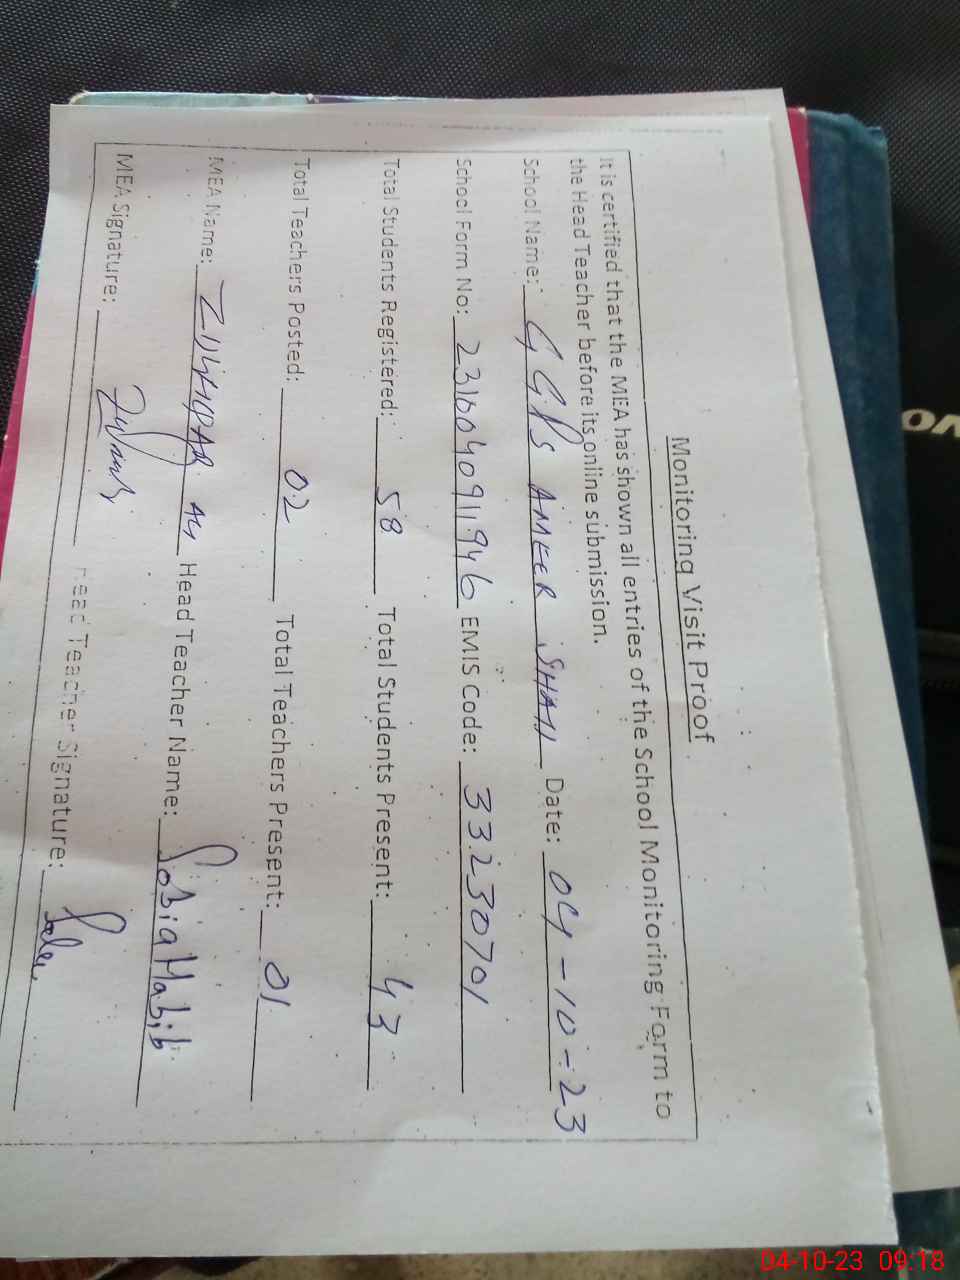 Monitoring Visit Proof
It is certified that the MEA has shown all entries of the School Monitoring Form to
the Head Teacher before its online submission.
School Name: GGPS AMEER SHAH Date: 04-10-23
School Form No: 231004091946 EMIS Code: 33230701
Total Students Registered: 58 Total Students Present: 43
Total Teachers Posted: 02 Total Teachers Present: 01
MEA Name: ZULFIQAR ALI Head Teacher Name: Sobia Habib
MEA Signature: Head Teacher Signature:
04-10-23 09:18